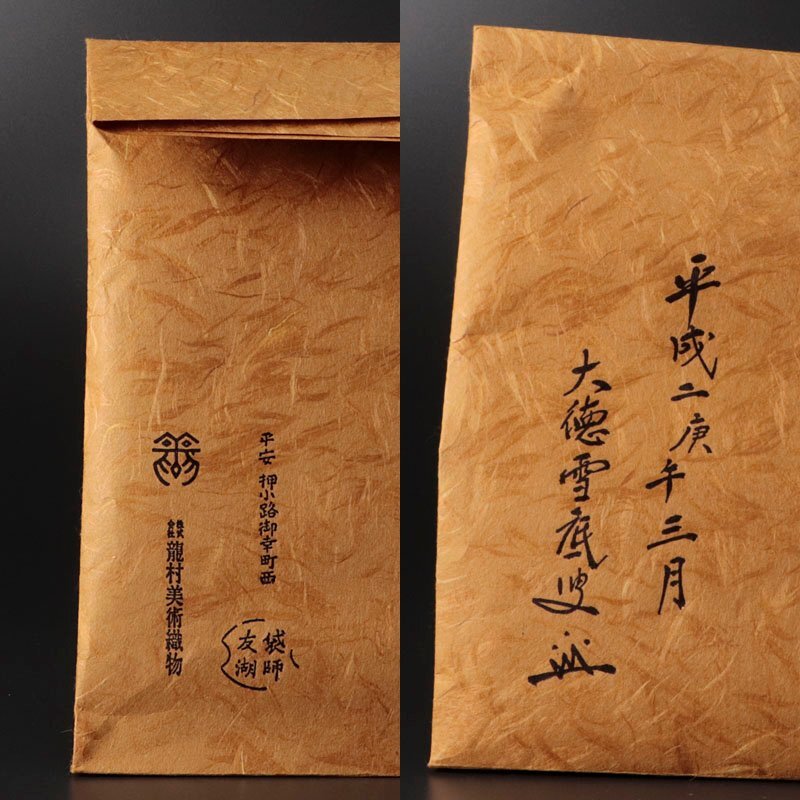 平安 押小路御幸町西
袋師
友湖
株式会社 龍村美術織物
平成二庚午三月
大徳雪底叟